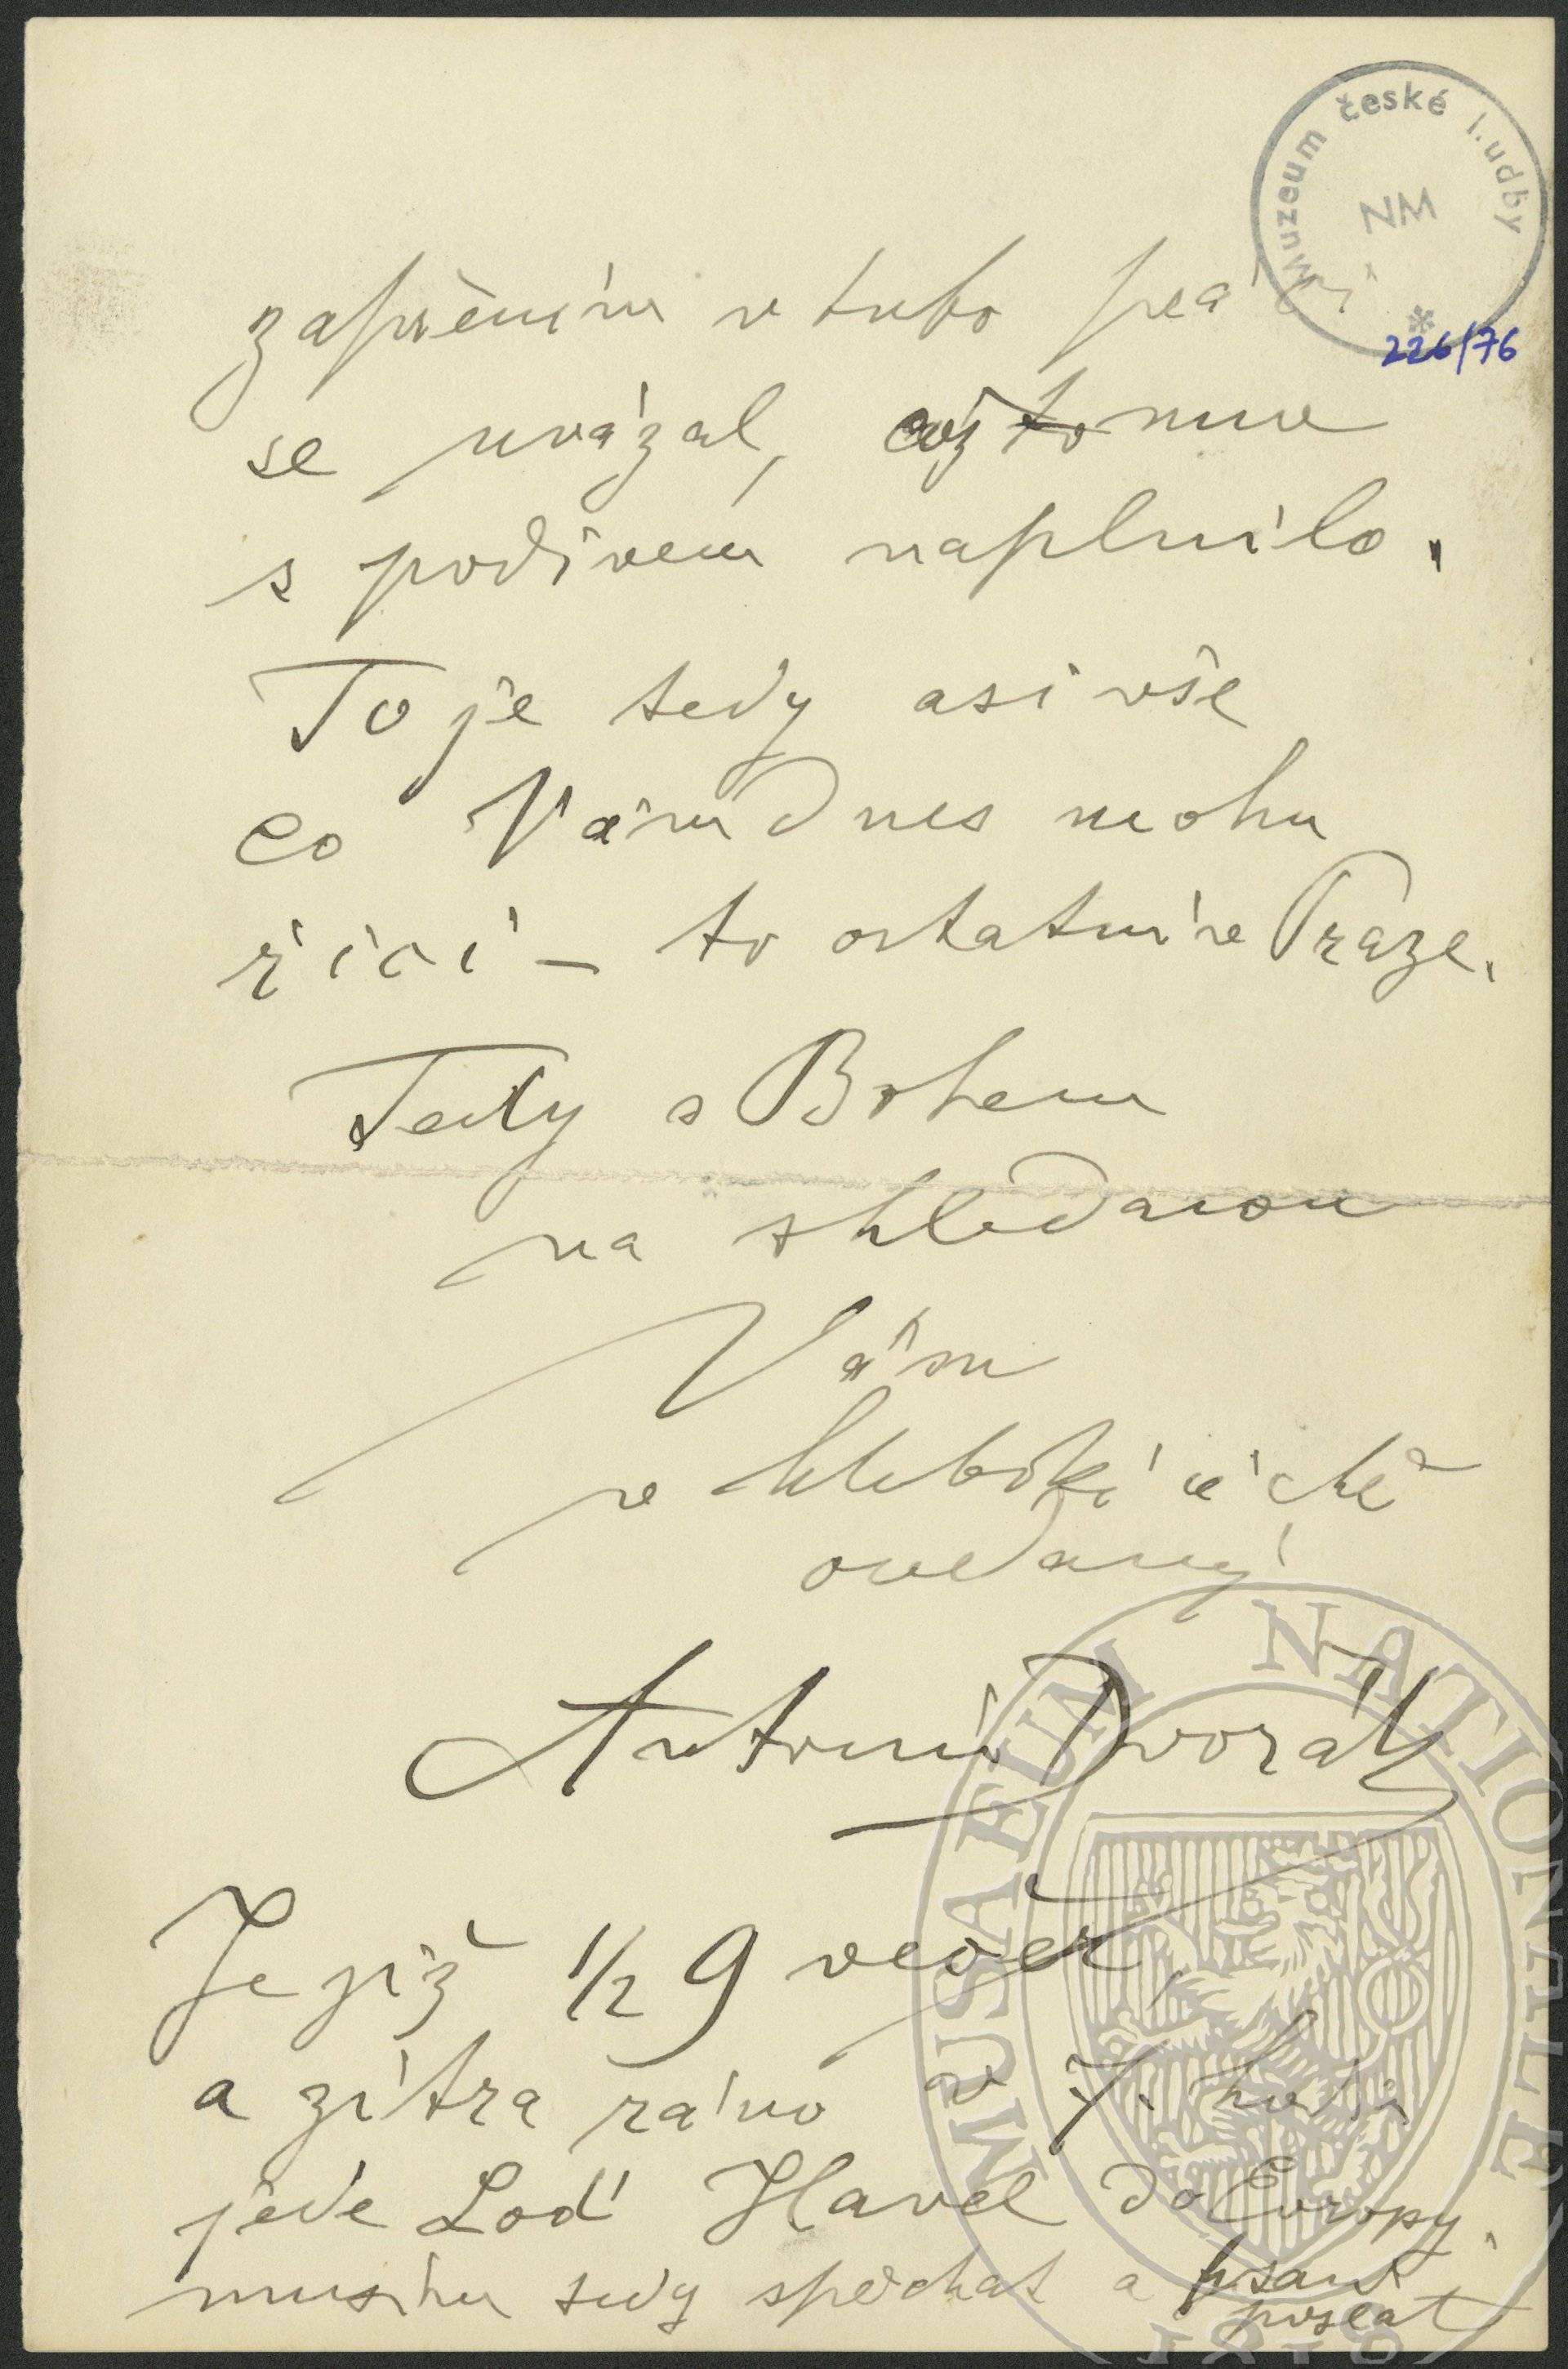 Muzeum české hudby
NM
226/76
zapřením v tuto prá ci
se uvázal, což to mne
s podivem naplnilo.
To je tedy asi vše
co Vám dnes mohu
říci – to ostatní v Praze.
Tedy s Bohem
na shledanou
Vám
v hluboké úctě
oddaný
Antonín Dvořák
Je již 1/2 9 večer,
a zítra ráno v 7. hodin
jede Loď Havel do Evropy.
musím tedy spěchat a psaní
poslat
MUSAEUM NATIONALE
1818